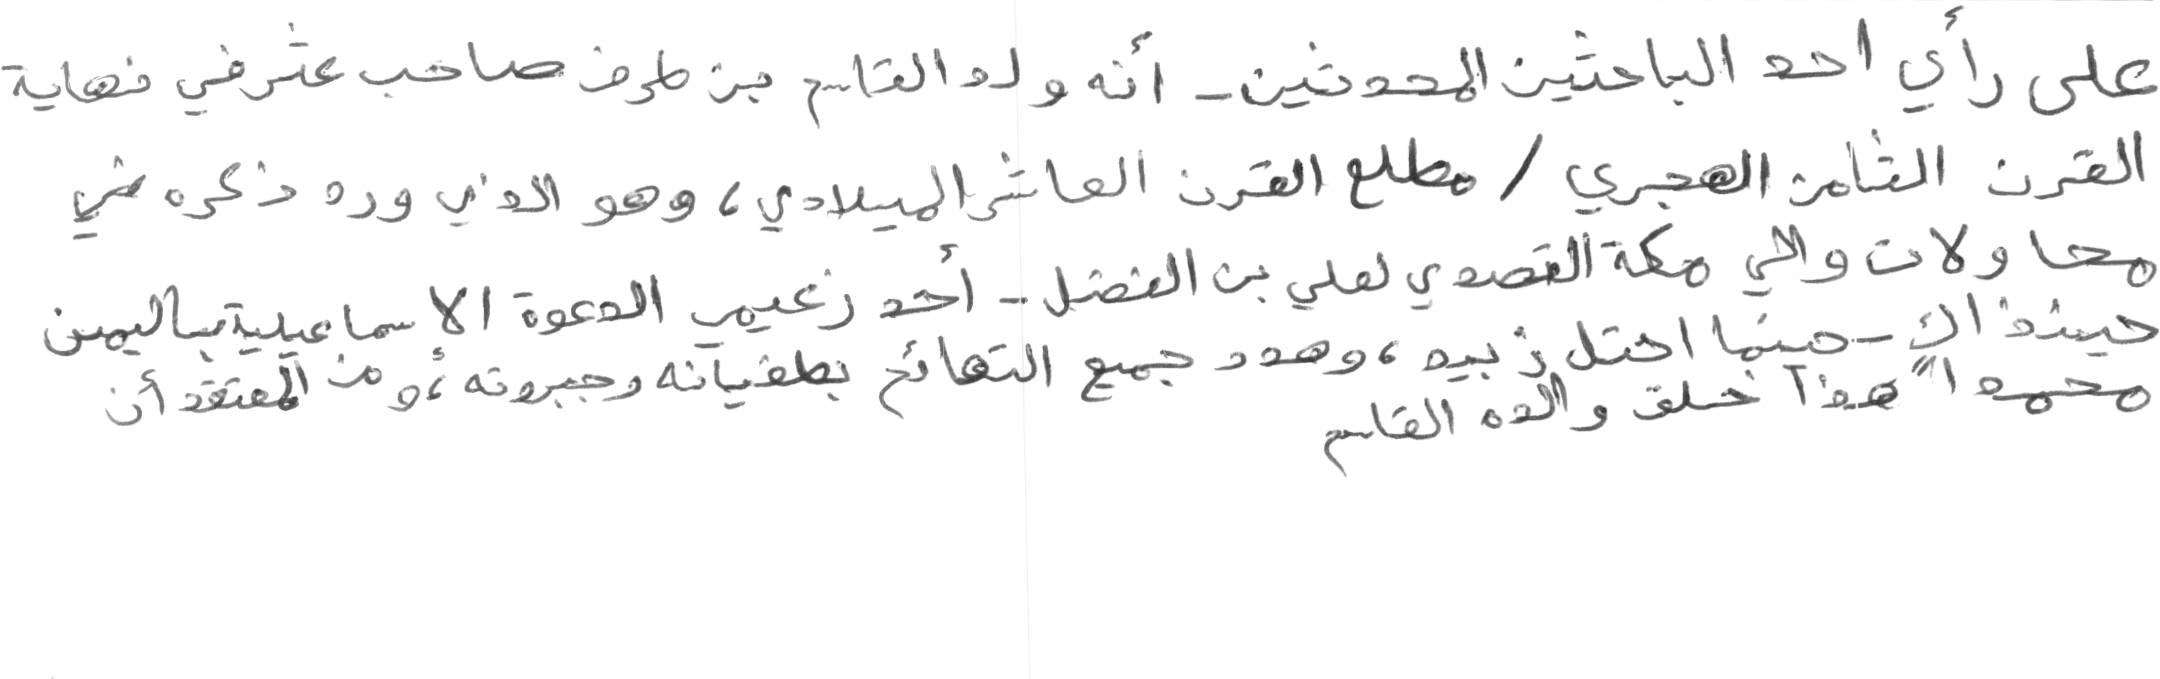 على رأي احد الباحثين المحدثين - أنه ولد القاسم بن طرف صاحب عثر في نهاية
القرن الثامن الهجري / مطلع القرن العاشر الميلادي، وهو الذي ورد ذكره في
محاولات والي مكة التصدي لعلي بن الفضل - أحد زعيمي الدعوة الإسماعيلية باليمن
حينذاك - حينما احتل زبيد، وهدد جميع التهائم بطغيانه وجبروته، ومن المعتقد أن
محمداً هذا خلف والده القاسم